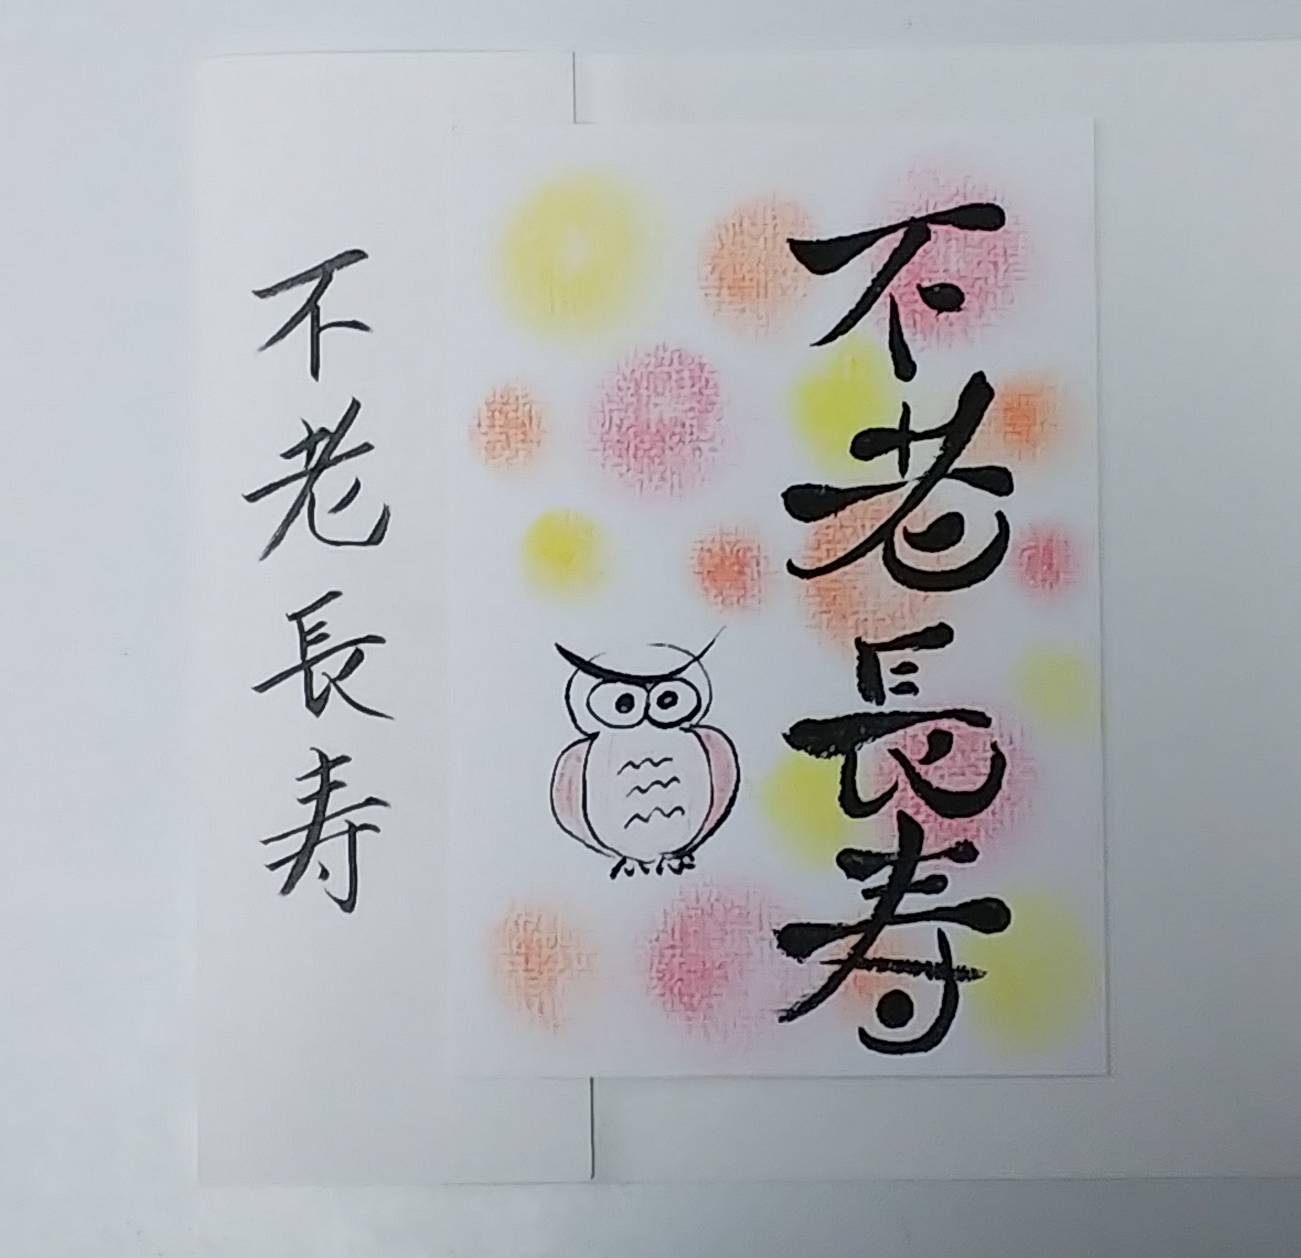 不老長寿
不老長寿